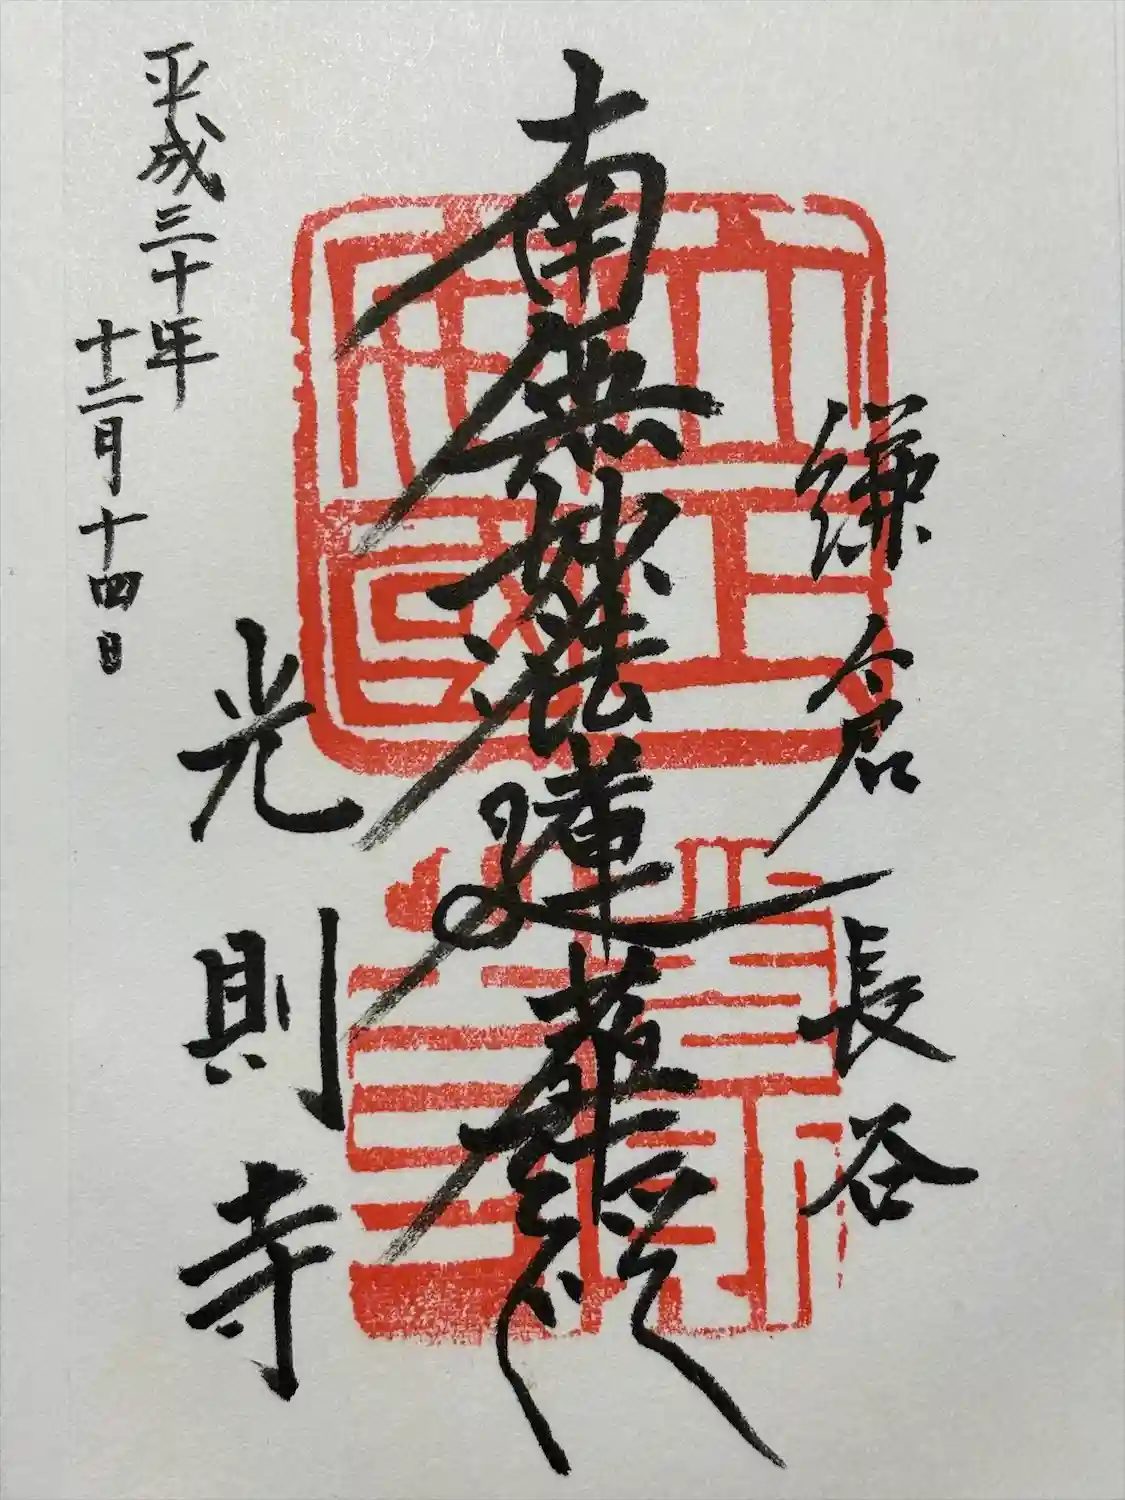 鎌倉長谷
南無妙法蓮華経
立正安国
光則寺
平成三十年
十二月十四日